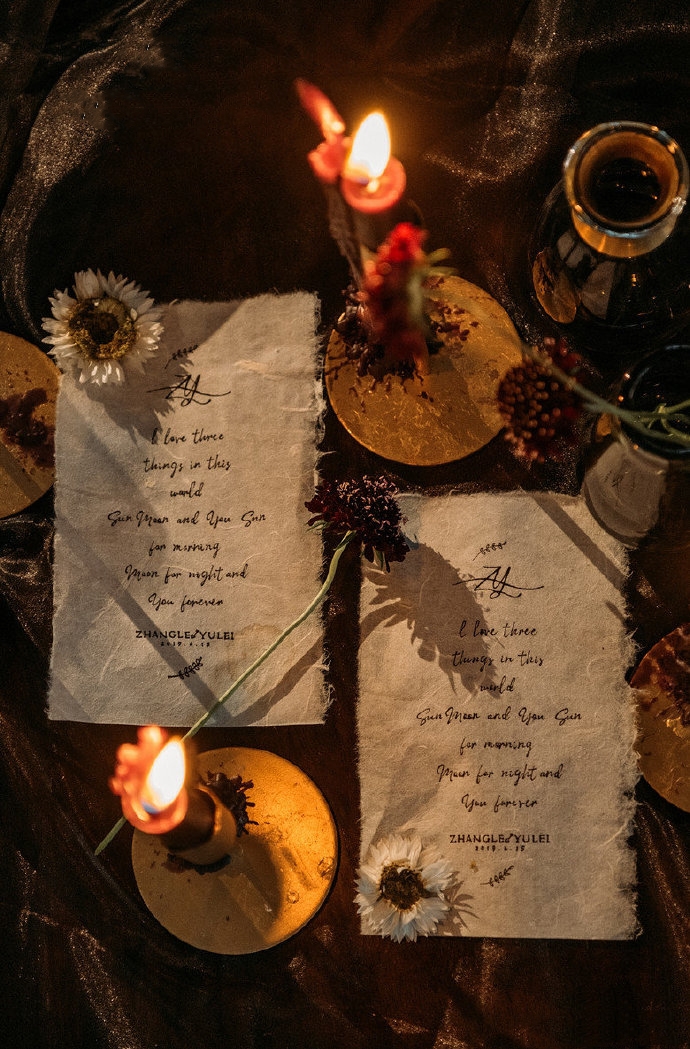 ZY
I love three
things in this
world
Sun Moon and You Sun
for morning
Moon for night and
You forever
ZHANGLE&YULEI
ZY
I love three
things in this
world
Sun Moon and You Sun
for morning
Moon for night and
You forever
ZHANGLE&YULEI